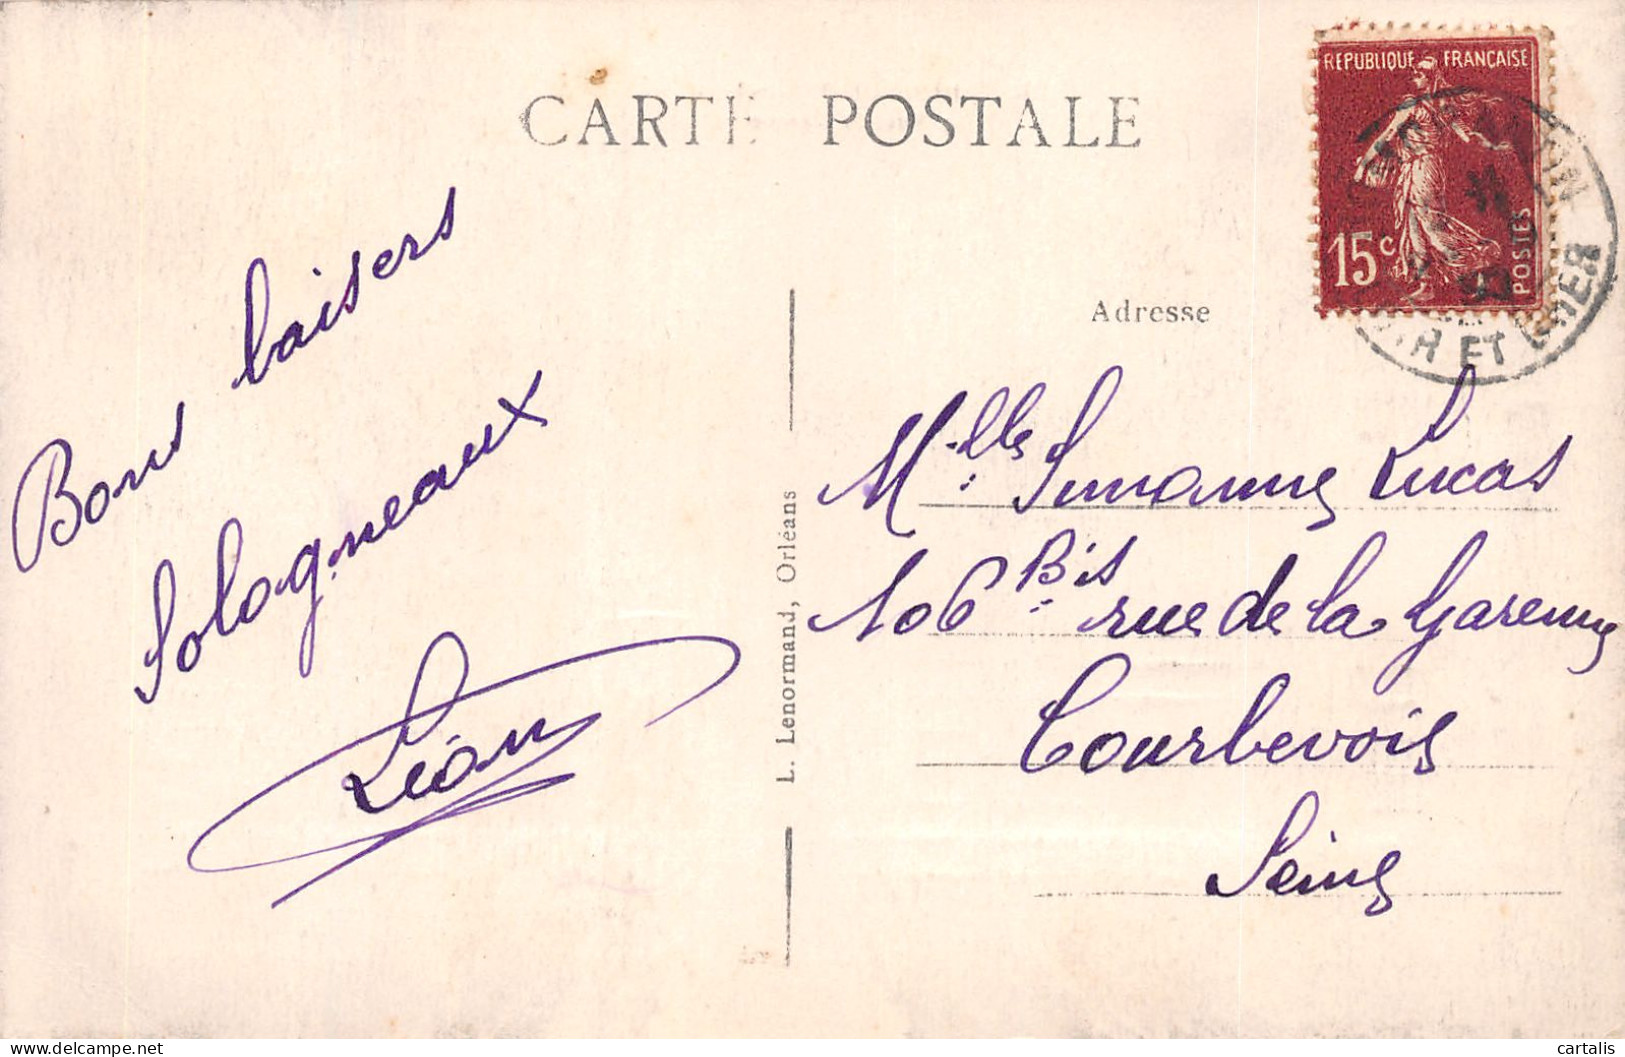 CARTE POSTALE
REPUBLIQUE FRANÇAISE
15c
POSTES
ET CHER
Bons baisers
Sologneaux
Léon
L. Lenormand, Orléans
Adresse
Melle Suzanne Lucas
106 Bis rue de la Garenne
Courbevois
Seine
www.delcampe.net
cartalis